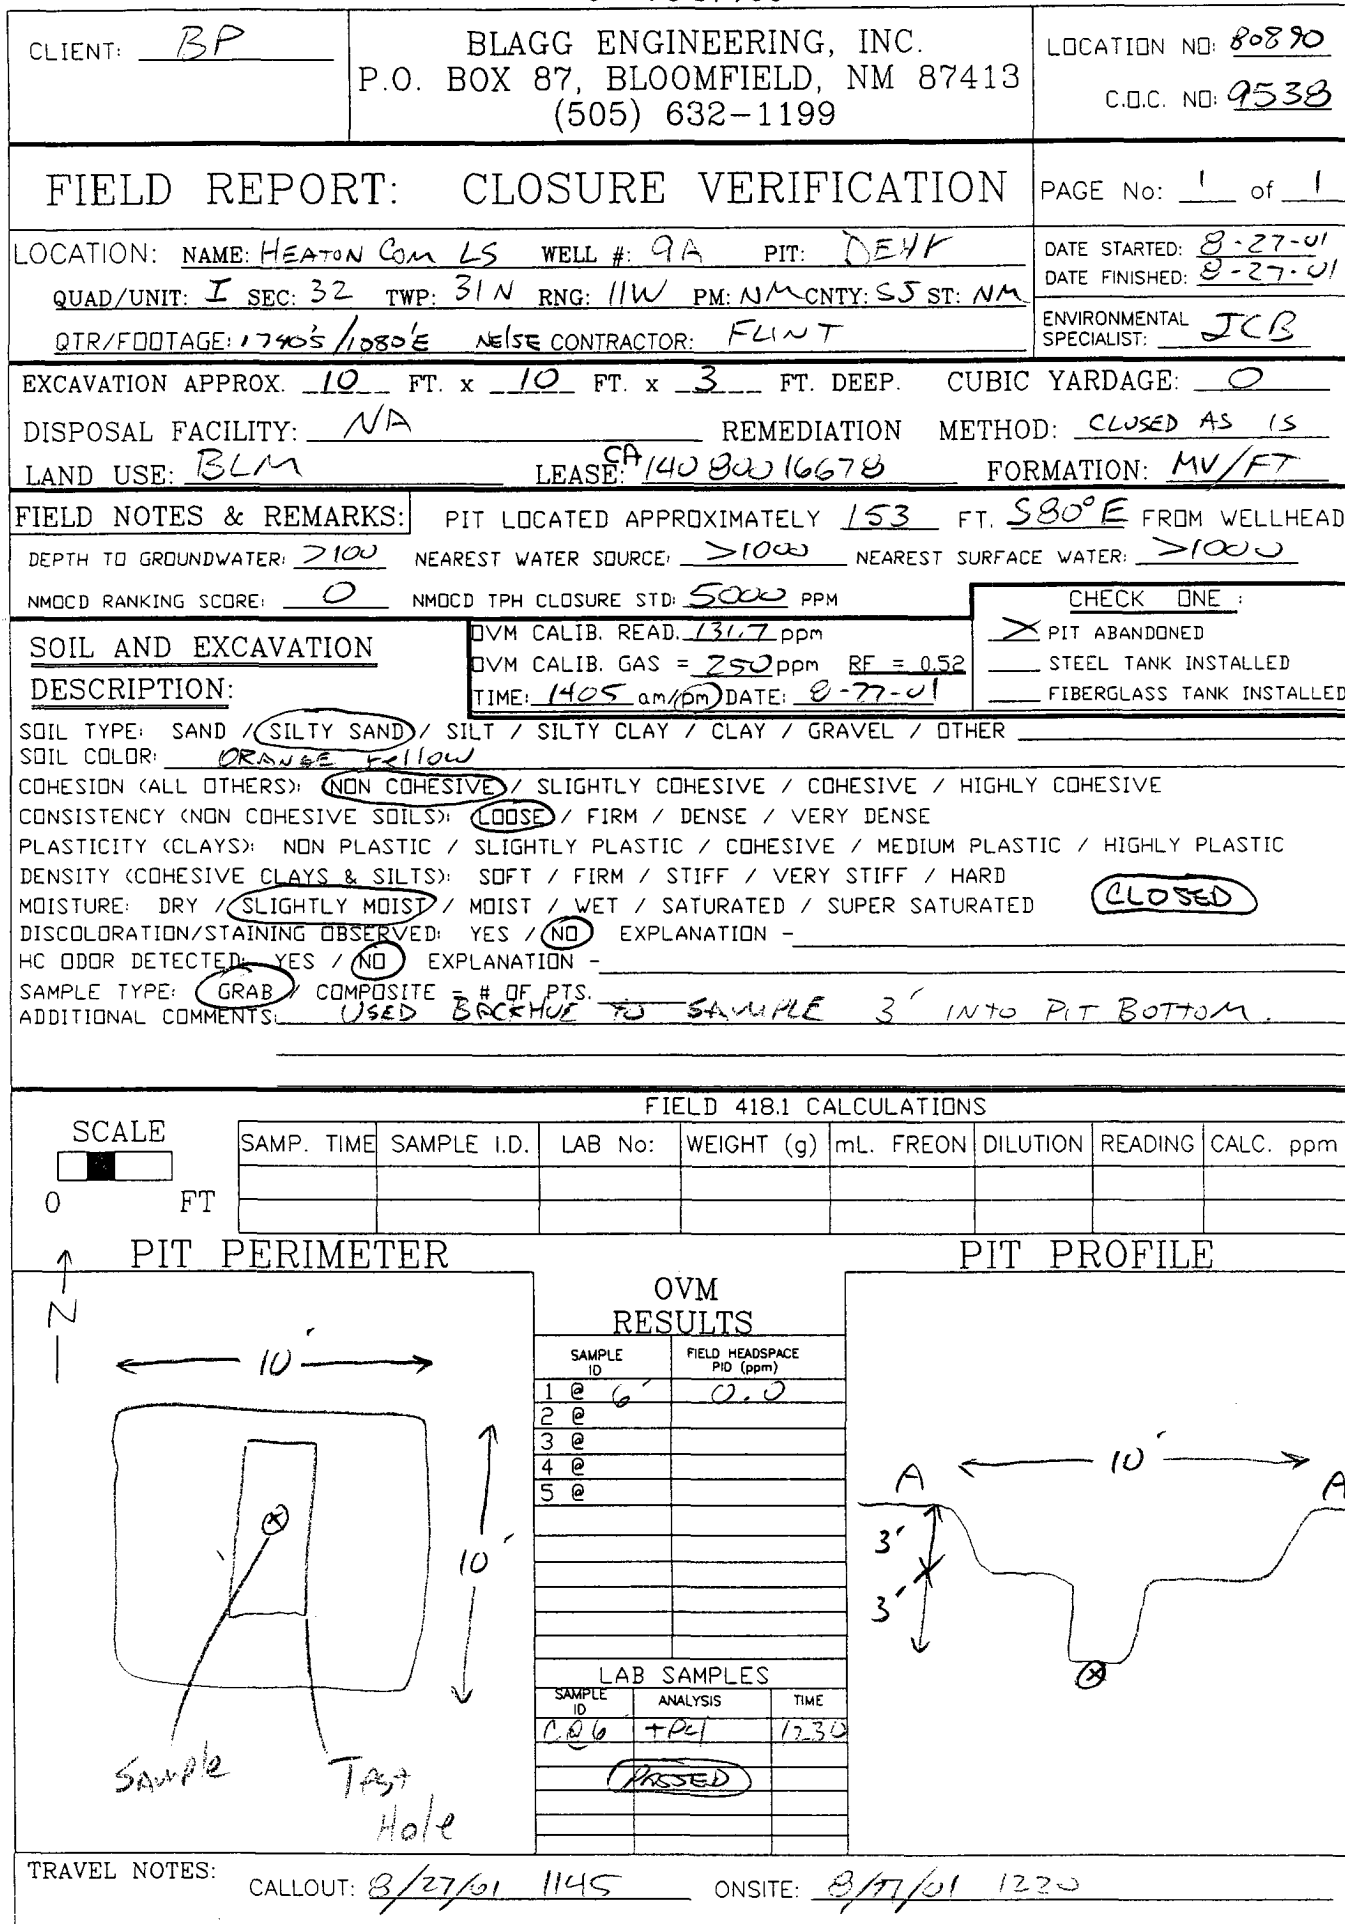 CLIENT: BP
BLAGG ENGINEERING, INC.
P.O. BOX 87, BLOOMFIELD, NM 87413
(505) 632-1199
LOCATION NO: 80890
C.O.C. NO: 9538
FIELD REPORT: CLOSURE VERIFICATION
PAGE No: 1 of 1
LOCATION: NAME: HEATON COM LS WELL #: 9A PIT: DEHY
QUAD/UNIT: I SEC: 32 TWP: 31N RNG: 11W PM: NM CNTY: SJ ST: NM
QTR/FOOTAGE: 1740'S/1080'E NE/SE CONTRACTOR: FLINT
DATE STARTED: 8-27-01
DATE FINISHED: 8-27-01
ENVIRONMENTAL
SPECIALIST: JCB
EXCAVATION APPROX. 10 FT. x 10 FT. x 3 FT. DEEP. CUBIC YARDAGE: 0
DISPOSAL FACILITY: NA REMEDIATION METHOD: CLOSED AS IS
LAND USE: BLM LEASE: CA 14080016678 FORMATION: MV/FT
FIELD NOTES & REMARKS: PIT LOCATED APPROXIMATELY 153 FT. S80°E FROM WELLHEAD
DEPTH TO GROUNDWATER: >100 NEAREST WATER SOURCE: >1000 NEAREST SURFACE WATER: >1000
NMOCD RANKING SCORE: 0 NMOCD TPH CLOSURE STD: 5000 PPM
CHECK ONE :
X PIT ABANDONED
STEEL TANK INSTALLED
FIBERGLASS TANK INSTALLED
SOIL AND EXCAVATION
DESCRIPTION:
OVM CALIB. READ. 131.7 ppm
OVM CALIB. GAS = 250 ppm RF = 0.52
TIME: 1405 am/pm DATE: 8-27-01
SOIL TYPE: SAND / SILTY SAND / SILT / SILTY CLAY / CLAY / GRAVEL / OTHER
SOIL COLOR: ORANGE YELLOW
COHESION (ALL OTHERS): NON COHESIVE / SLIGHTLY COHESIVE / COHESIVE / HIGHLY COHESIVE
CONSISTENCY (NON COHESIVE SOILS): LOOSE / FIRM / DENSE / VERY DENSE
PLASTICITY (CLAYS): NON PLASTIC / SLIGHTLY PLASTIC / COHESIVE / MEDIUM PLASTIC / HIGHLY PLASTIC
DENSITY (COHESIVE CLAYS & SILTS): SOFT / FIRM / STIFF / VERY STIFF / HARD
MOISTURE: DRY / SLIGHTLY MOIST / MOIST / WET / SATURATED / SUPER SATURATED CLOSED
DISCOLORATION/STAINING OBSERVED: YES / NO EXPLANATION -
HC ODOR DETECTED: YES / NO EXPLANATION -
SAMPLE TYPE: GRAB / COMPOSITE - # OF PTS.
ADDITIONAL COMMENTS: USED BACKHOE TO SAMPLE 3' INTO PIT BOTTOM.
FIELD 418.1 CALCULATIONS
SCALE
0 FT
SAMP. TIME SAMPLE I.D. LAB No: WEIGHT (g) mL. FREON DILUTION READING CALC. ppm
PIT PERIMETER
N
10'
10'
Sample
Test
Hole
OVM
RESULTS
SAMPLE ID FIELD HEADSPACE PID (ppm)
1 @ 6' 0.0
2 @
3 @
4 @
5 @
LAB SAMPLES
SAMPLE ID ANALYSIS TIME
C@6 TPH 1230
PASSED
PIT PROFILE
A 10' A
3'
3'
TRAVEL NOTES: CALLOUT: 8/27/01 1145 ONSITE: 8/27/01 1220